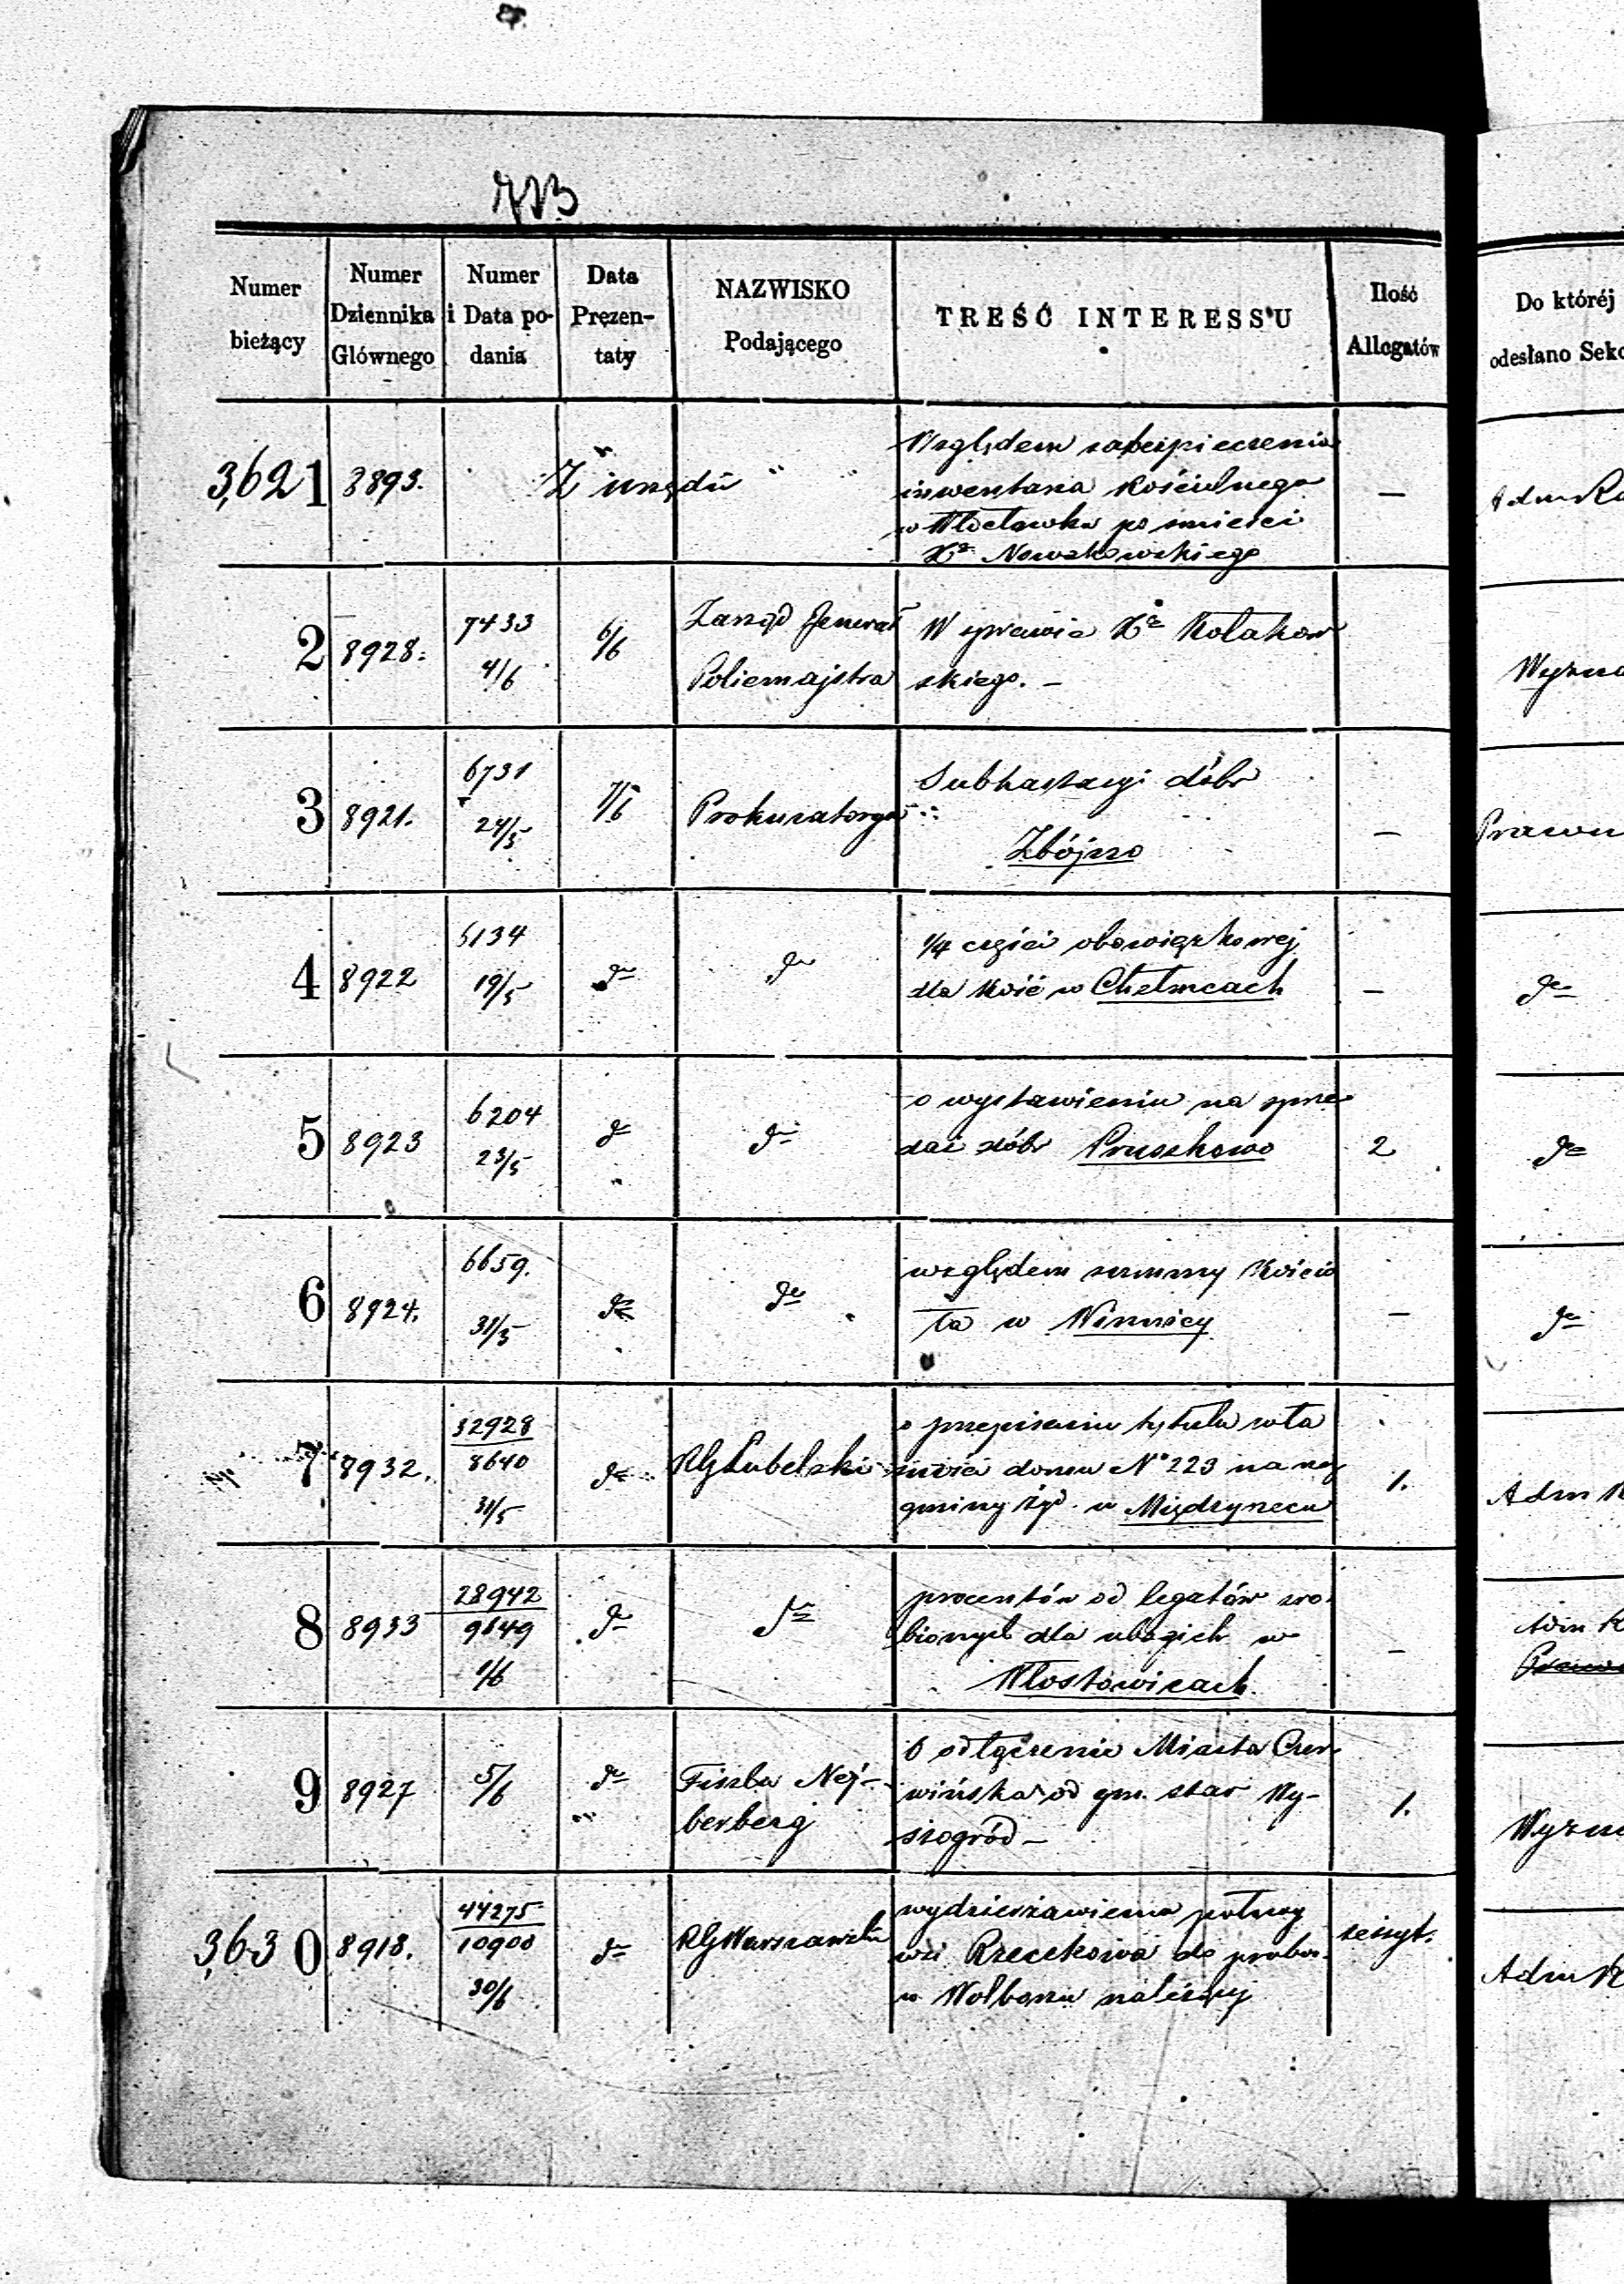 Numer bieżący
Numer Dziennika Głównego
Numer i Data podania
Data Prezentaty
NAZWISKO Podającego
TREŚĆ INTERESSU
Ilość Allegatów
Do któréj
odesłano Sek
3,621 8893. Z urzędu
Względem zabezpieczenia
inwentarza kościelnego
w Włocławku po śmierci
Xa Nowakowskiego
—
Adm
2 8928. 7433 4/6 6/6
Zarząd Jenerał
Policmajstra
W sprawie Xa Kołakow
skiego. —
Wyzna
3 8921. 6731 24/5 7/6
Prokuratorya
Subhastacyi dóbr
Zbójno
—
Prawn
4 8922 5134 19/5 do do
1/4 części obowiązkowej
dla kość w Chełmcach
—
do
5 8923 6204 23/5 do do
o wystawieniu na sprze
daż dóbr Pruszkowo
2
do
6 8924. 6659. 31/5 do do
względem summy Kościo
ła w Winnicy
—
do
7 8932. 32928 8640 31/5 do
RG Lubelski
o przepisaniu tytułu wła
sności domu No 223 na rzez
gminy żyd. w Międzyrzecu
1.
Adm
8 8933 28942 9649 1/6 do do
procentów od legatów zro
bionych dla ubogich w
Włostowicach
—
Adm
9 8927 5/6 do
Fiszla Nej-
berberg
O odłączenie Miasta Czer
wińska od gm. star Wy-
szogród —
1.
Wyzn
3,630 8918. 44275 10900 30/6 do
RG Warszawski
wydzierżawienia połowy
wsi Rzeczkowa do probos.
w Wolborzu należącej
zeszyt.
Adm